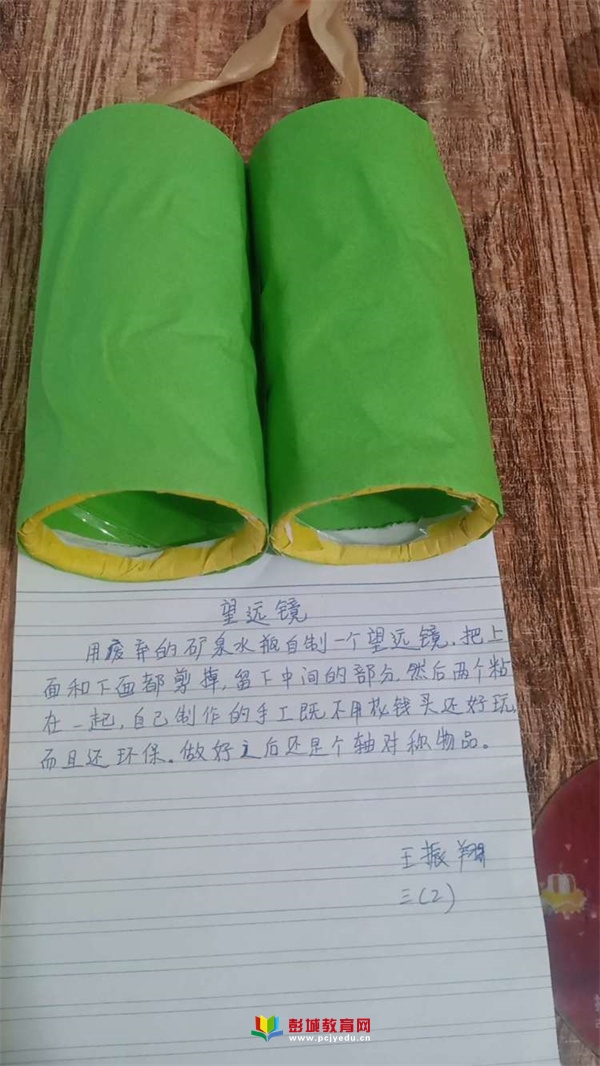 望远镜
用废弃的矿泉水瓶自制一个望远镜.把上
面和下面都剪掉,留下中间的部分.然后两个粘
在一起,自己制作的手工既不用花钱买还好玩,
而且还环保。做好之后还是个轴对称物品。
王振翔
三(2)
彭城教育网
www.pcjyedu.cn